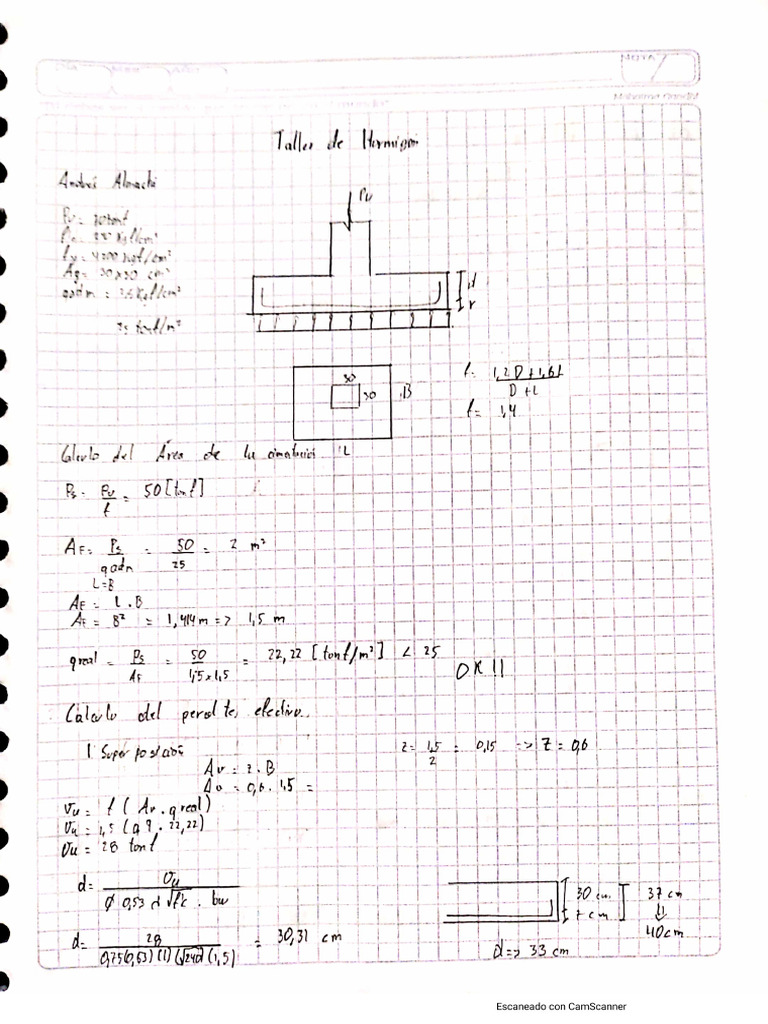 NOTA
Taller de Hormigon
Andrés Almachi
Pu
Pu = 70tonf
f'c = 240 Kgf/cm²
fy = 4200 Kgf/cm²
Ag = 30x30 cm²
qadm = 2,5 Kgf/cm²
25 tonf/m²
d
r
30
30
B
L
f = 1,2D+1,6L
D+L
f = 1,4
Cálculo del Área de la cimentación
Ps = Pu = 50 [tonf]
f
AF = Ps = 50 = 2 m²
qadm 25
L=B
AF = L . B
AF = B² = 1,414m => 1,5 m
qreal = Ps = 50 = 22,22 [tonf/m²] < 25
AF 1,5x1,5
OK !!
Cálculo del peralte efectivo.
1. Superposición
z = 1,5 = 0,15 => Z = 0,6
2
Av = z . B
Av = 0,6 . 1,5 =
Vu = f ( Av . qreal)
Vu = 1,5 (0,9 . 22,22)
Vu = 28 tonf
d = Vu
Ø 0,53 λ √f'c . bw
30 cm
7 cm
37 cm
⇓
40cm
d = 28 = 30,31 cm
0,75(0,53)(1)(√240)(1,5)
d => 33 cm
Escaneado con CamScanner